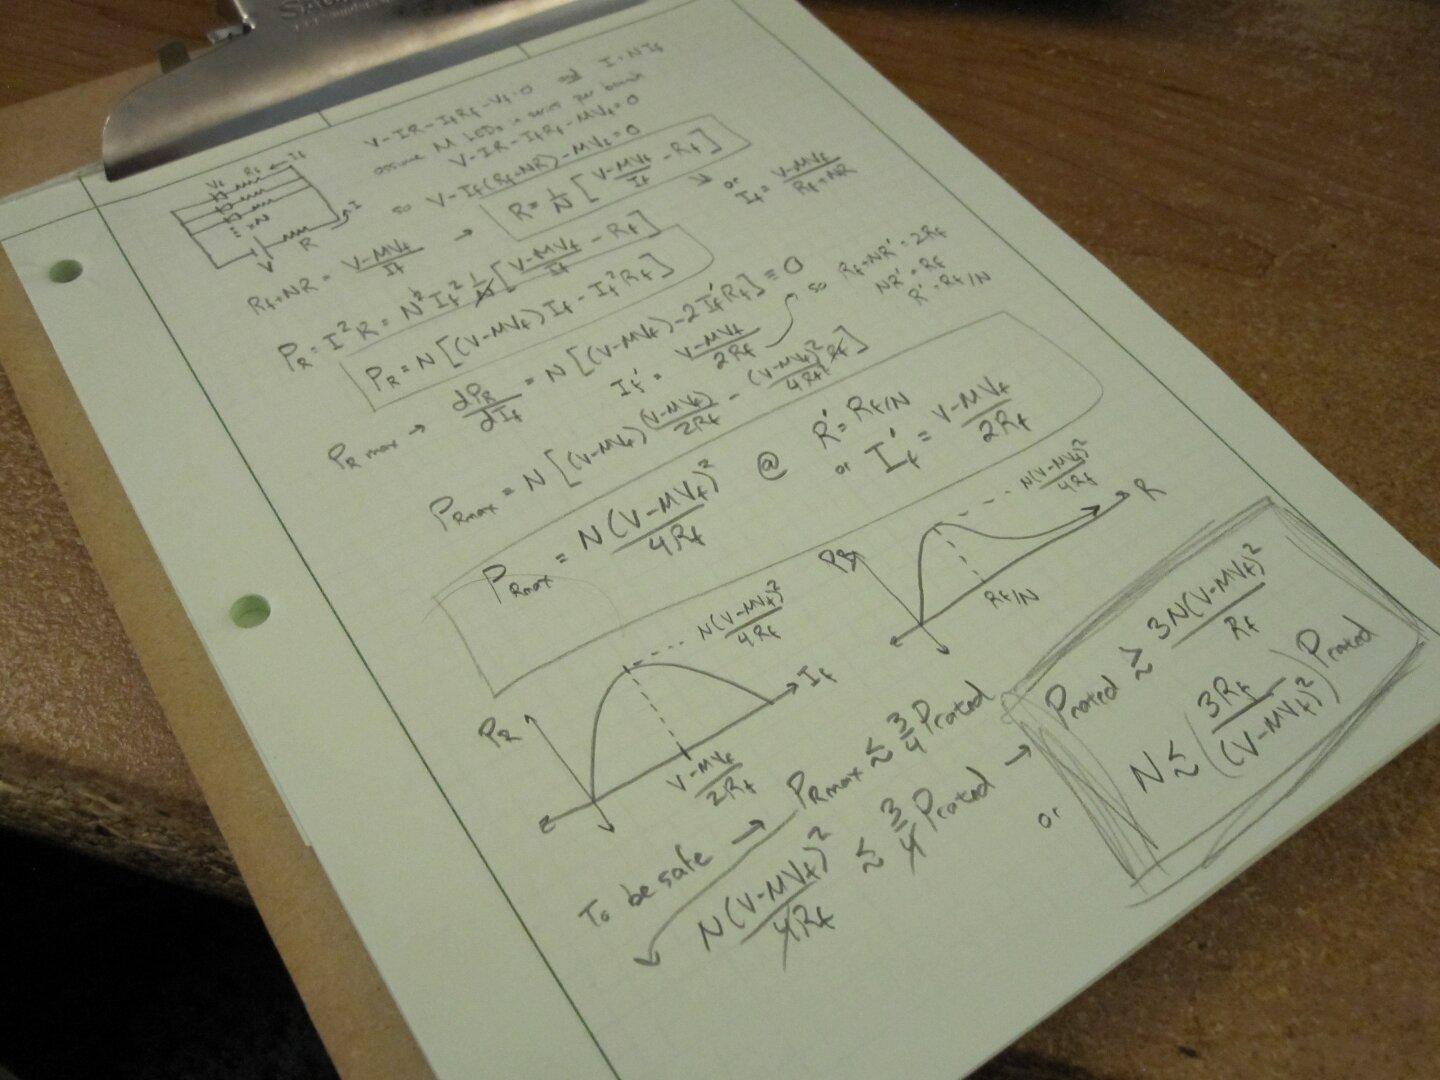 V-IR-I_fR_f-V_f=0 I=NI_f
assume M LEDs in series per branch
V-IR-I_fR_f-MV_f=0
so V-I_f(R_f+NR)-MV_f=0
R_f+NR = (V-MV_f)/I_f → R = 1/N [(V-MV_f)/I_f - R_f]
or I_f = (V-MV_f)/(R_f+NR)
V_f R_f ← I_f
xN
I
R
V
P_R = I²R = N²I_f² 1/N [(V-MV_f)/I_f - R_f]
P_R = N[(V-MV_f)I_f - I_f²R_f]
P_R max → dP_R/dI_f = N[(V-MV_f)-2I_f'R_f] = 0
I_f' = (V-MV_f)/2R_f
so R_f+NR' = 2R_f
NR' = R_f
R' = R_f/N
P_Rmax = N[(V-MV_f)(V-MV_f)/2R_f - (V-MV_f)²/4R_f² R_f]
P_Rmax = N(V-MV_f)²/4R_f @ R' = R_f/N
or I_f' = (V-MV_f)/2R_f
P_R
N(V-MV_f)²/4R_f
R
R_f/N
P_R
N(V-MV_f)²/4R_f
I_f
V-MV_f/2R_f
To be safe → P_Rmax ≲ 3/4 P_rated
N(V-MV_f)²/4R_f ≲ 3/4 P_rated →
P_rated ≳ 3N(V-MV_f)²/R_f
or N ≲ (3R_f/(V-MV_f)²) P_rated